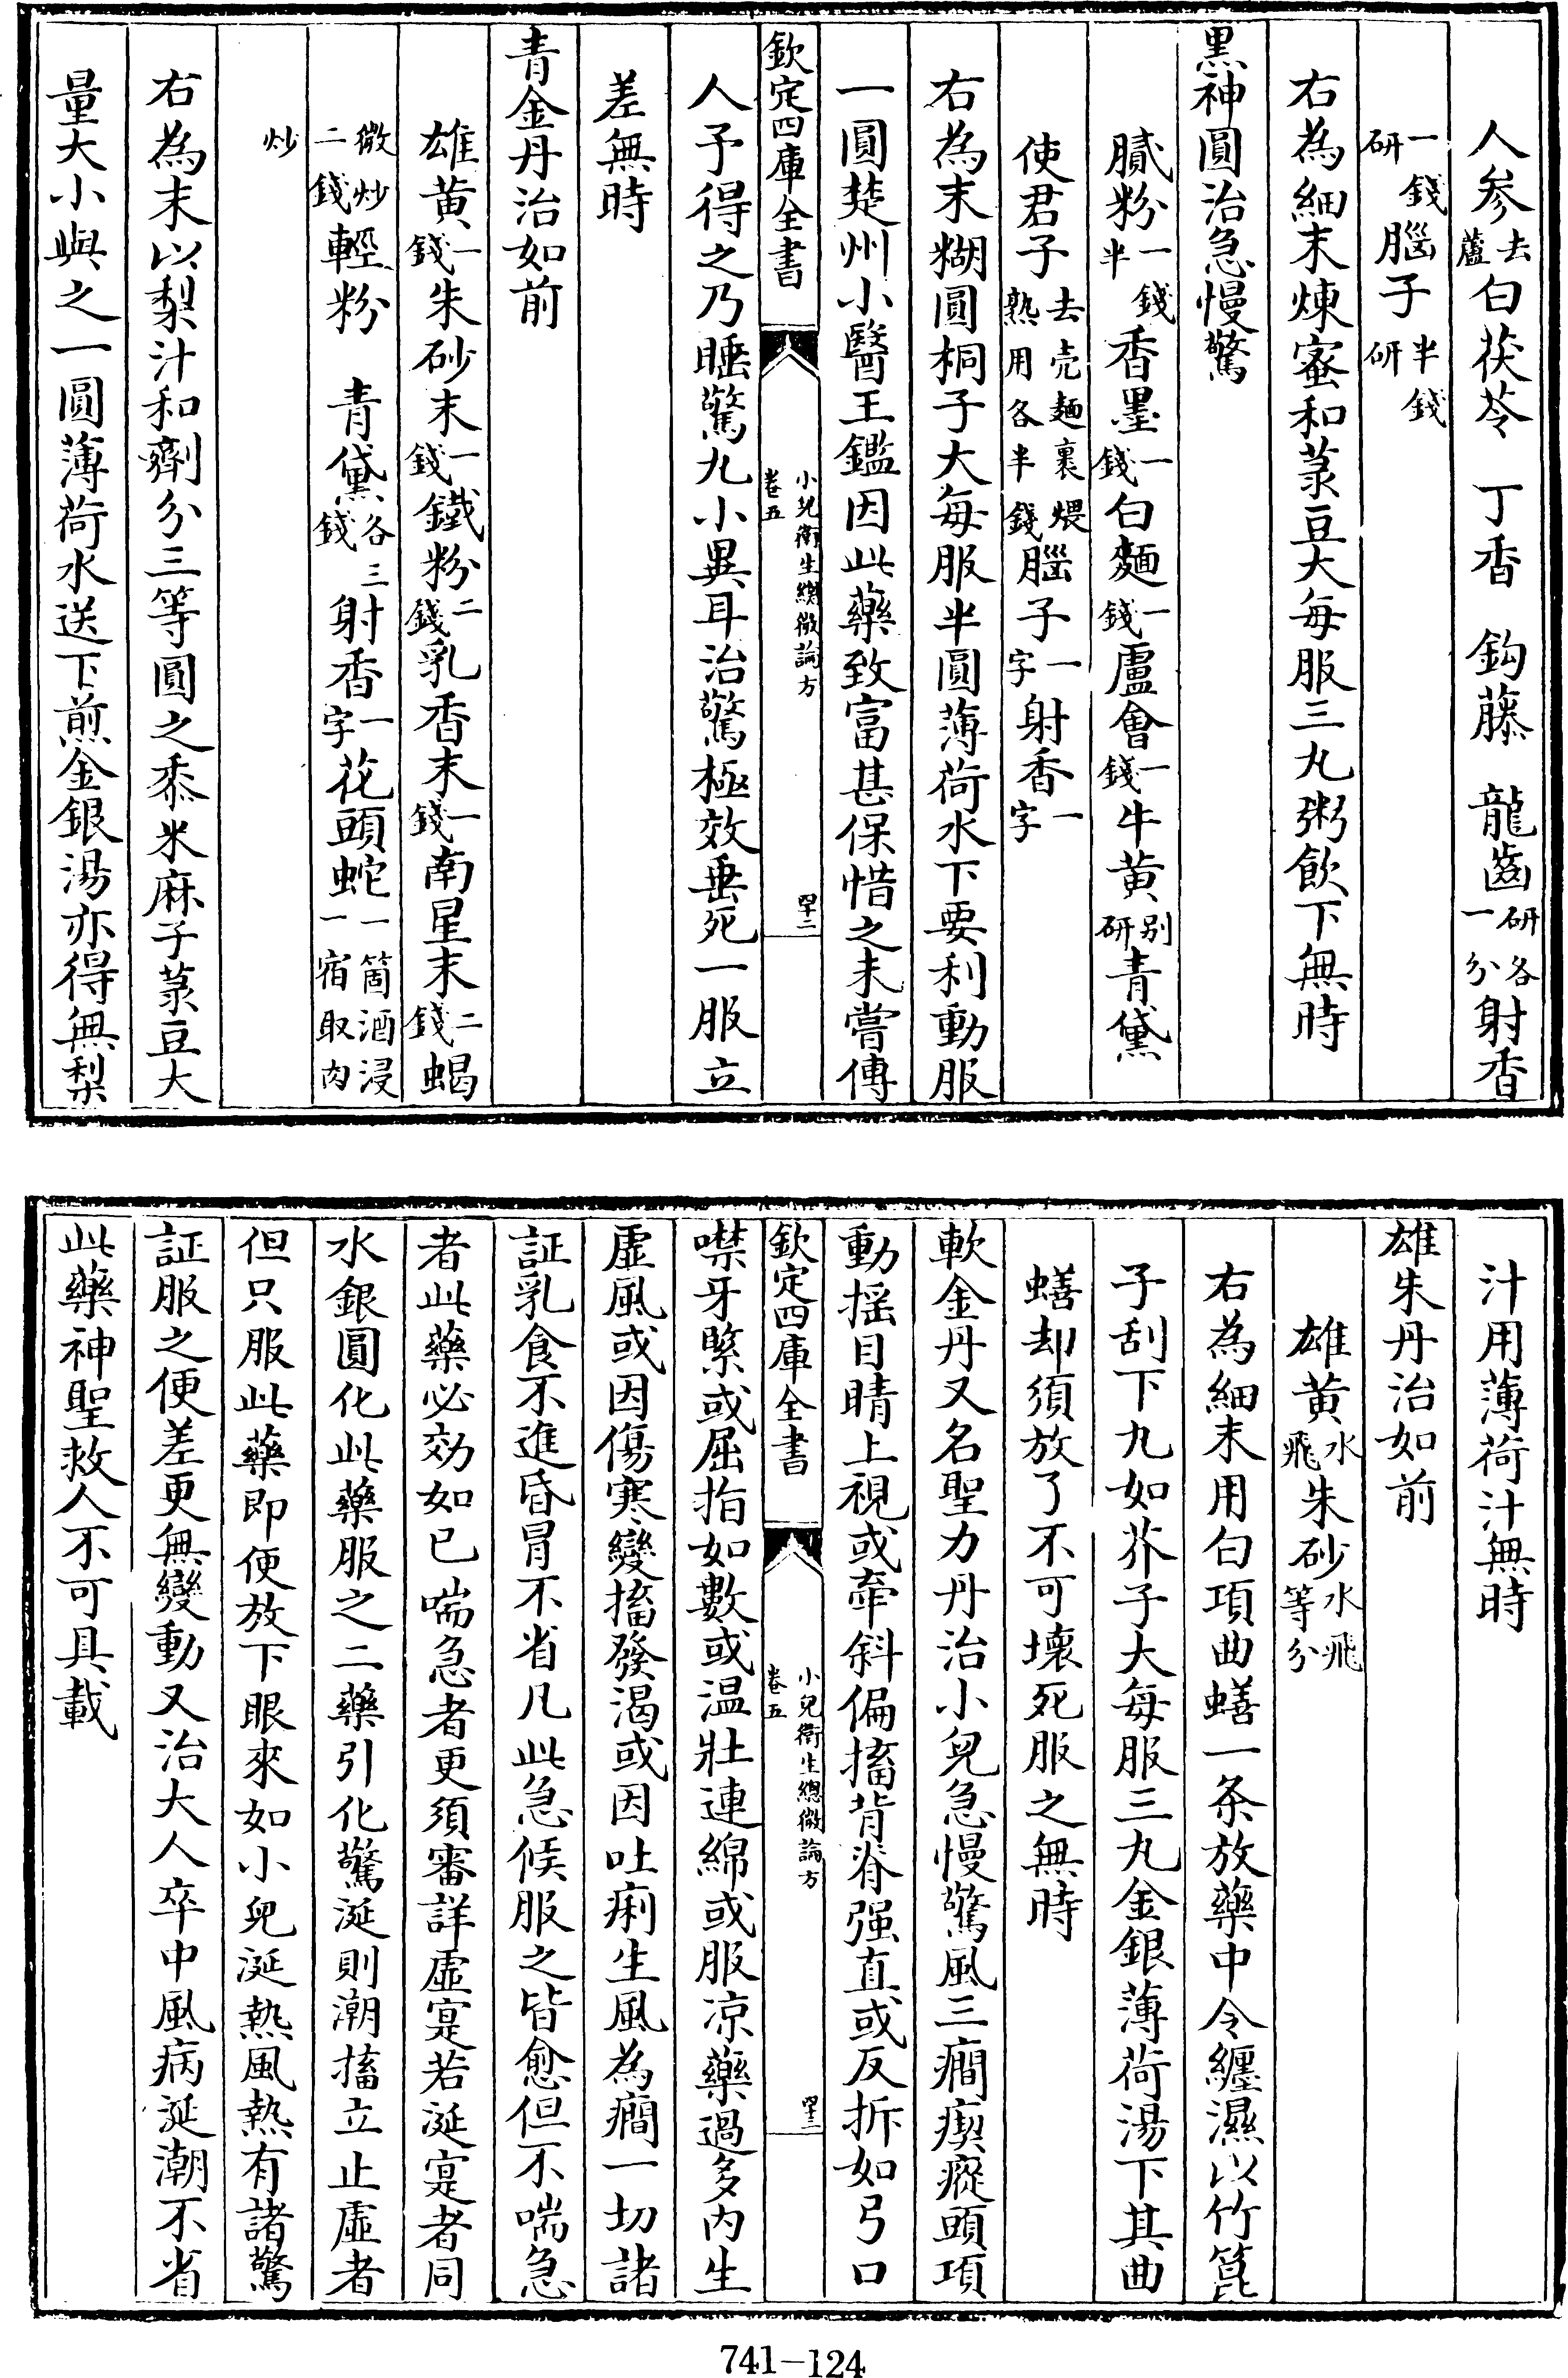 人参去蘆白茯苓丁香鈎藤龍齒研各一分射香
一錢研腦子半錢研
右為細末煉蜜和菉豆大每服三丸粥飲下無時
黒神圓治急慢驚
膩粉一錢半香墨一錢白麵一錢盧會一錢牛黄别研青黛
使君子去壳麵裹煨熟用各半錢腦子一字射香一字
右為末糊圓桐子大每服半圓薄荷水下要利動服
一圓楚州小醫王鑑因此藥致富甚保惜之未嘗傳
欽定四庫全書 小兒衛生總微論方 卷五 四十二
人予得之乃睡驚丸小異耳治驚極效垂死一服立
差無時
青金丹治如前
雄黄一錢朱砂末一錢鐵粉二錢乳香末一錢南星末二錢蝎
微炒二錢輕粉青黛各三錢射香一字花頭蛇一箇酒浸一宿取肉
炒
右為末以梨汁和劑分三等圓之黍米麻子菉豆大
量大小與之一圓薄荷水送下煎金銀湯亦得無梨
汁用薄荷汁無時
雄朱丹治如前
雄黄水飛朱砂水飛等分
右為細末用白項曲蟮一条放藥中令纏濕以竹篦
子刮下丸如芥子大每服三丸金銀薄荷湯下其曲
蟮却須放了不可壞死服之無時
軟金丹又名聖力丹治小兒急慢驚風三癎瘈瘲頭項
動揺目睛上視或牽斜偏搐背脊强直或反拆如弓口
欽定四庫全書 小兒衛生總微論方 卷五 四十三
噤牙緊或屈指如數或温壯連綿或服凉藥過多内生
虚風或因傷寒變搐發渴或因吐痢生風為癎一切諸
証乳食不進昏冒不省凡此急候服之皆愈但不喘急
者此藥必効如已喘急者更須審詳虚寔若涎寔者同
水銀圓化此藥服之二藥引化驚涎則潮搐立止虚者
但只服此藥即便放下眼來如小兒涎熱風熱有諸驚
証服之便差更無變動又治大人卒中風病涎潮不省
此藥神聖救人不可具載
741-124